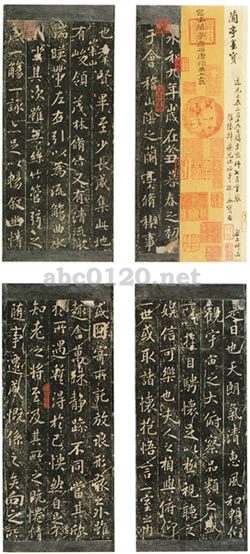 蘭亭墨寶
永和九年歲在癸丑暮春之初
會于會稽山陰之蘭亭脩稧事
也羣賢畢至少長咸集此地
有崇山峻領茂林脩竹又有清流激
湍暎帶左右引以為流觴曲水
列坐其次雖無絲竹管弦之
盛一觴一詠亦足以暢敘幽情
abc0120.net
是日也天朗氣清惠風和暢仰
觀宇宙之大俯察品類之盛
所以遊目騁懷足以極視聽之
娛信可樂也夫人之相與俯仰
一世或取諸懷抱悟言一室之內
或因寄所託放浪形骸之外雖
趣舍萬殊靜躁不同當其欣
於所遇蹔得於己快然自足不
知老之將至及其所之既惓情
隨事遷感慨係之矣向之所